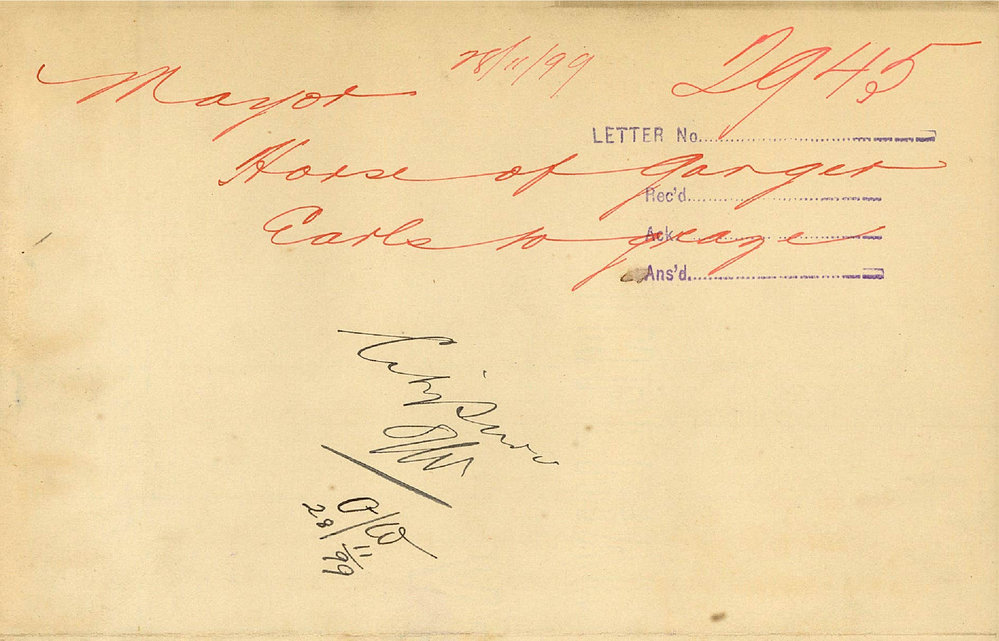 28/11/99 2945
Mayor
LETTER No.
Horse of Ganger
Rec'd.
Earls to graze
Ack
Ans'd.
City Surv
O/W
28/11/99